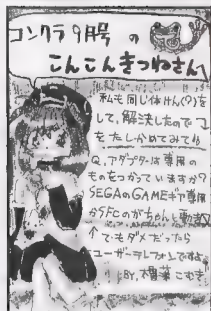 コンクラ9月号の
こんこんきつねさん
私も同じ体けん(?)を
して、解決したので
をたしかめてみてね
Q.アダプターは専用の
ものをつかっていますか?
SEGAのGAMEギア専用
かSFCのがちゃんと動きま
↑でもダメだったら
ユーザーテレフォンですネ
BY.
こむぎ